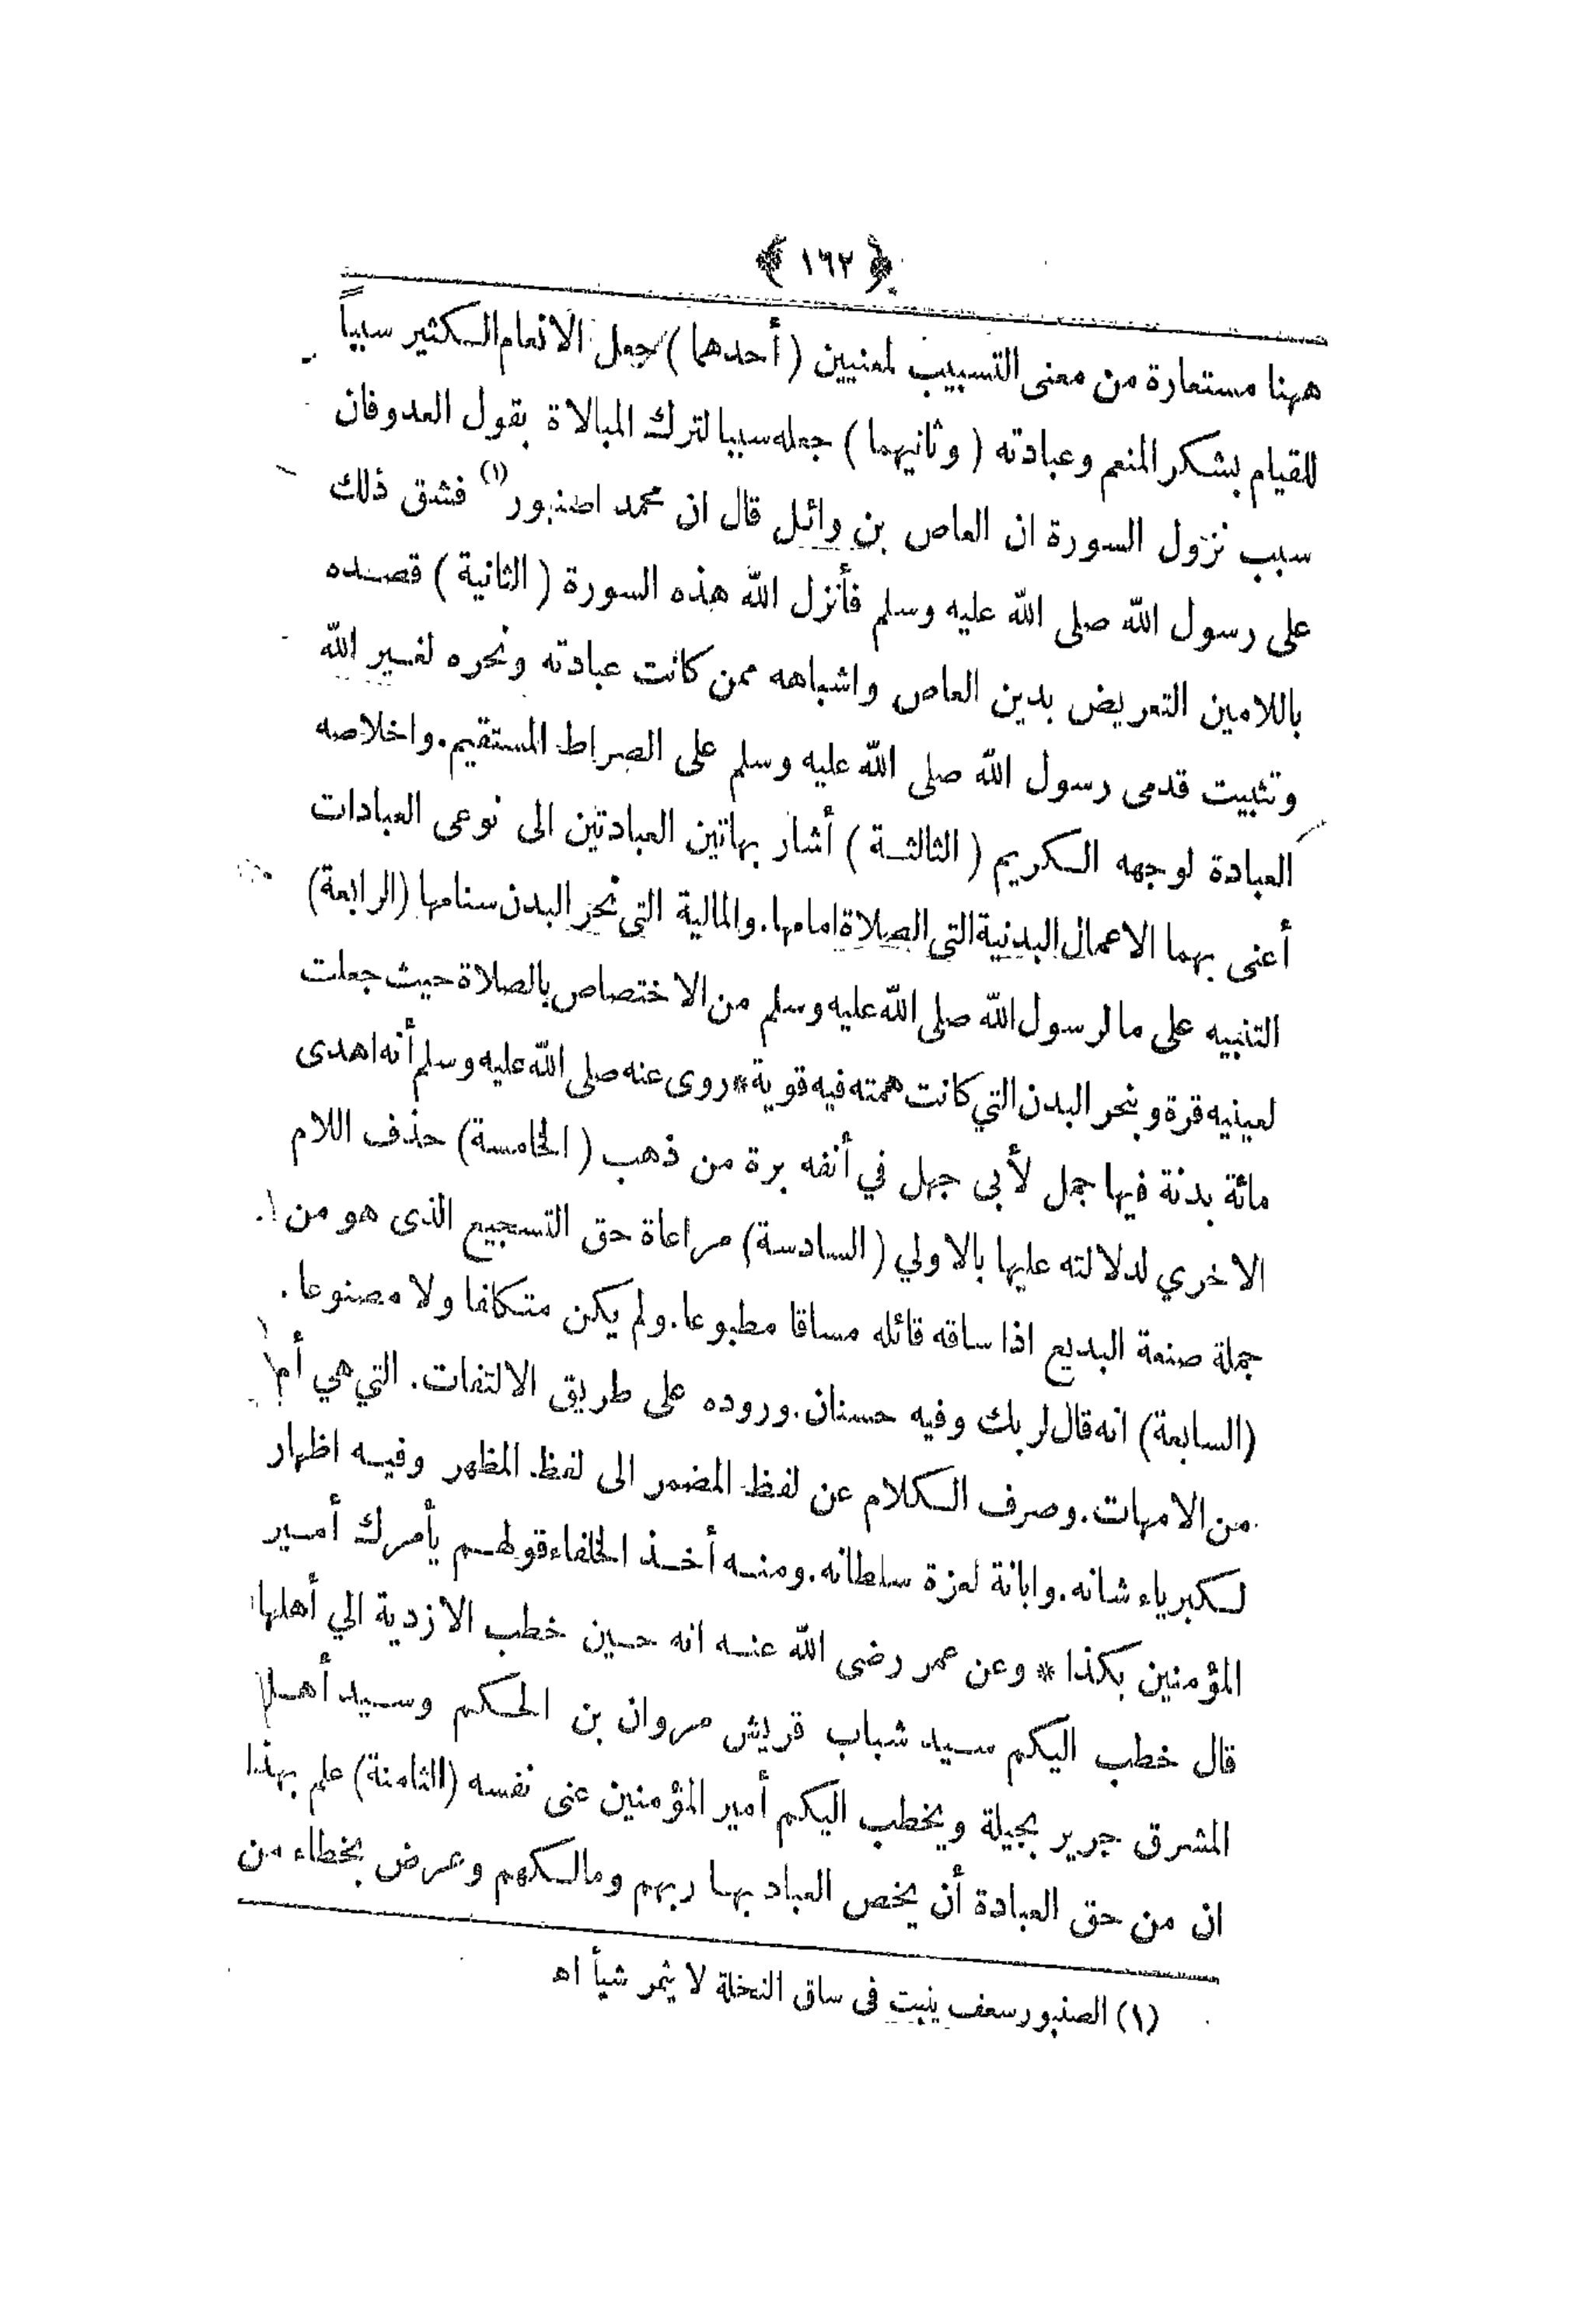 ﴿ ١٦٢ ﴾
ههنا مستعارة من معنى التسبيب لمعنيين ( أحدهما ) جعل الانعام الكثير سبباً
للقيام بشكر المنعم وعبادته ( وثانيهما ) جعله سببا لترك المبالاة بقول العدو فان
سبب نزول السورة ان العاص بن وائل قال ان محمد اصنبور (١) فشق ذلك
على رسول الله صلى الله عليه وسلم فأنزل الله هذه السورة ( الثانية ) قصده
باللامين التعريض بدين العاص واشباهه ممن كانت عبادته ونحره لغير الله
وتثبيت قدمى رسول الله صلى الله عليه وسلم على الصراط المستقيم . واخلاصه
العبادة لوجهه الكريم ( الثالثة ) أشار بهاتين العبادتين الى نوعى العبادات
أعنى بهما الاعمال البدنية التى الصلاة امامها . والمالية التى نحر البدن سنامها (الرابعة)
التنبيه على ما لرسول الله صلى الله عليه وسلم من الاختصاص بالصلاة حيث جعلت
لعينيه قرة وبنحر البدن التي كانت همته فيه قوية * روى عنه صلى الله عليه وسلم أنه اهدى
مائة بدنة فيها جمل لأبى جهل في أنفه برة من ذهب ( الخامسة) حذف اللام
الاخري لدلالته عليها بالاولي ( السادسة) مراعاة حق التسجيع الذى هو من
جملة صنعة البديع اذا ساقه قائله مساقا مطبوعا . ولم يكن متكلفا ولا مصنوعا .
(السابعة) انه قال لربك وفيه حسنان . وروده على طريق الالتفات . التي هي أم
من الامهات . وصرف الكلام عن لفظ المضمر الى لفظ المظهر وفيه اظهار
لكبرياء شانه . وابانة لعزة سلطانه . ومنه أخذ الخلفاء قولهم يأمرك أمير
المؤمنين بكذا * وعن عمر رضى الله عنه انه حين خطب الازدية الي أهلها
قال خطب اليكم سيد شباب قريش مروان بن الحكم وسيد أهل
المشرق جرير بجيلة ويخطب اليكم أمير المؤمنين عنى نفسه (الثامنة) علم بهذا
ان من حق العبادة أن يخص العباد بها ربهم ومالكهم وعرض بخطاء من
(١) الصنبور سعف ينبت فى ساق النخلة لا يثمر شيأ اه